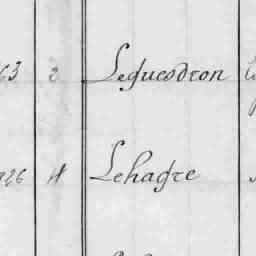 63 2 Lequesdron
926 A Lehagre